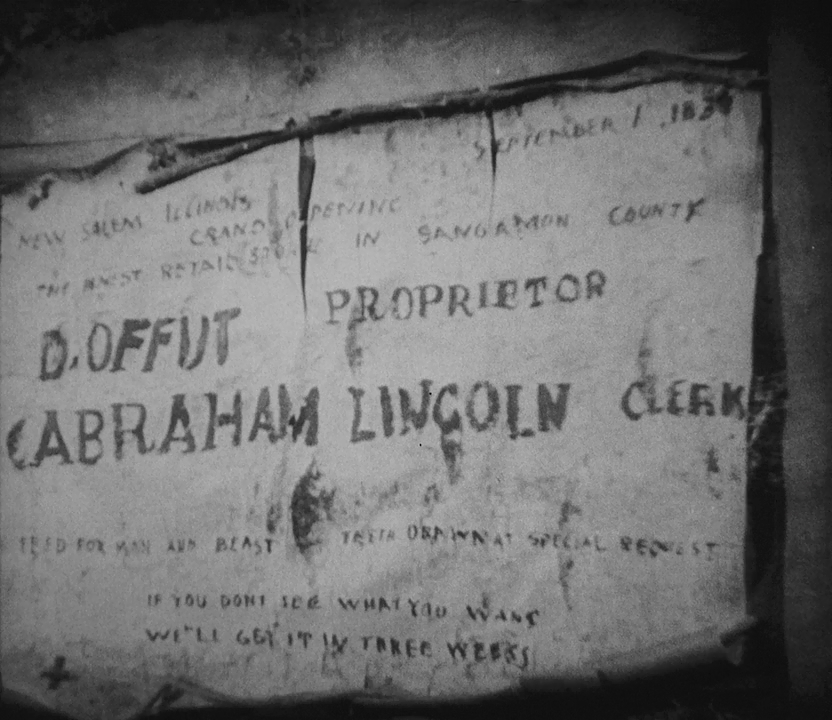 SEPTEMBER 1, 183
NEW SALEM ILLINOIS
GRAND OPENING
THE FINEST RETAIL STORE IN SANGAMON COUNTY
D. OFFUT PROPRIETOR
ABRAHAM LINCOLN CLERK
FEED FOR MAN AND BEAST TEETH DRAWN AT SPECIAL REQUEST
IF YOU DONT SEE WHAT YOU WANT
WE'LL GET IT IN THREE WEEKS